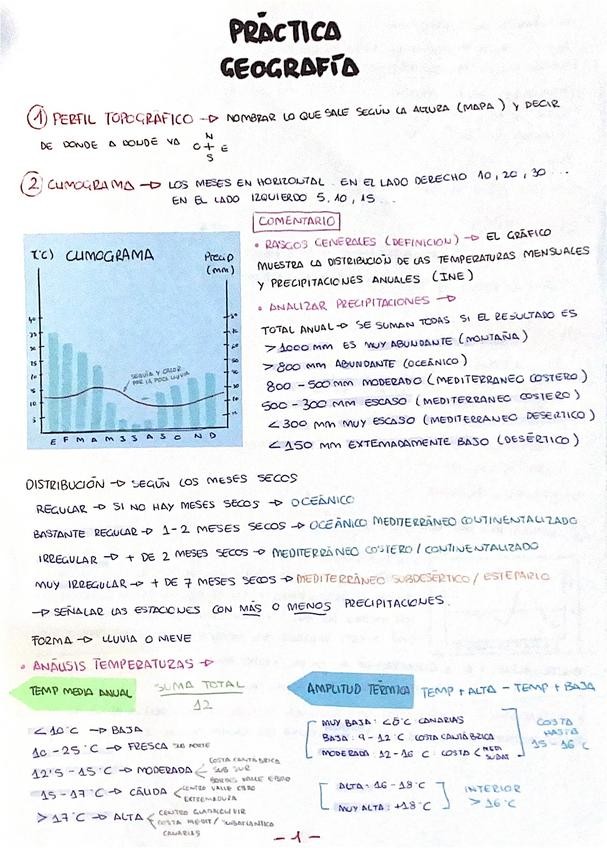 PRÁCTICA
GEOGRAFÍA
① PERFIL TOPOGRÁFICO → NOMBRAR LO QUE SALE SEGÚN LA ALTURA (MAPA) Y DECIR
DE DONDE A DONDE VA
N
O + E
S
② CLIMOGRAMA → LOS MESES EN HORIZONTAL. EN EL LADO DERECHO 10, 20, 30...
EN EL LADO IZQUIERDO 5, 10, 15...
COMENTARIO
• RASGOS GENERALES (DEFINICION) → EL GRÁFICO
MUESTRA LA DISTRIBUCIÓN DE LAS TEMPERATURAS MENSUALES
Y PRECIPITACIONES ANUALES (INE)
• ANALIZAR PRECIPITACIONES →
TOTAL ANUAL → SE SUMAN TODAS SI EL RESULTADO ES
> 1000 MM ES MUY ABUNDANTE (MONTAÑA)
> 800 MM ABUNDANTE (OCEÁNICO)
800 - 500 MM MODERADO (MEDITERRANEO COSTERO)
500 - 300 MM ESCASO (MEDITERRANEO COSTERO)
< 300 MM MUY ESCASO (MEDITERRANEO DESERTICO)
< 150 MM EXTEMADAMENTE BAJO (DESÉRTICO)
T(°C) CLIMOGRAMA PRECIP
(mm)
SEQUÍA Y CALOR
POR LA POCA LLUVIA
E F M A M J J A S O N D
DISTRIBUCIÓN → SEGÚN LOS MESES SECOS
REGULAR → SI NO HAY MESES SECOS → OCEÁNICO
BASTANTE REGULAR → 1-2 MESES SECOS → OCEÁNICO MEDITERRÁNEO CONTINENTALIZADO
IRREGULAR → + DE 2 MESES SECOS → MEDITERRÁNEO COSTERO / CONTINENTALIZADO
MUY IRREGULAR → + DE 7 MESES SECOS → MEDITERRÁNEO SUBDESÉRTICO / ESTEPARIO
→ SEÑALAR LAS ESTACIONES CON MÁS O MENOS PRECIPITACIONES.
FORMA → LLUVIA O NIEVE
• ANÁLISIS TEMPERATURAS →
TEMP MEDIA ANUAL SUMA TOTAL
12
< 10°C → BAJA
10 - 25°C → FRESCA SUB NORTE
12'5 - 15°C → MODERADA < COSTA CANTÁBRICA
SUB SUR
BORDES VALLE EBRO
15 - 17°C → CÁLIDA < CENTRO VALLE EBRO
EXTREMADURA
> 17°C → ALTA < CENTRO GUADALQUIVIR
COSTA MEDIT / SUBATLANTICA
CANARIAS
AMPLITUD TÉRMICA TEMP + ALTA - TEMP + BAJA
MUY BAJA: <8°C CANARIAS
BAJA: 9 - 12°C COSTA CANTÁBRICA
MODERADA 12-16°C: COSTA < MEDI
SUDAT
COSTA
HASTA
15 - 16°C
ALTA: 16 - 18°C
MUY ALTA: +18°C
INTERIOR
> 16°C
- 1 -